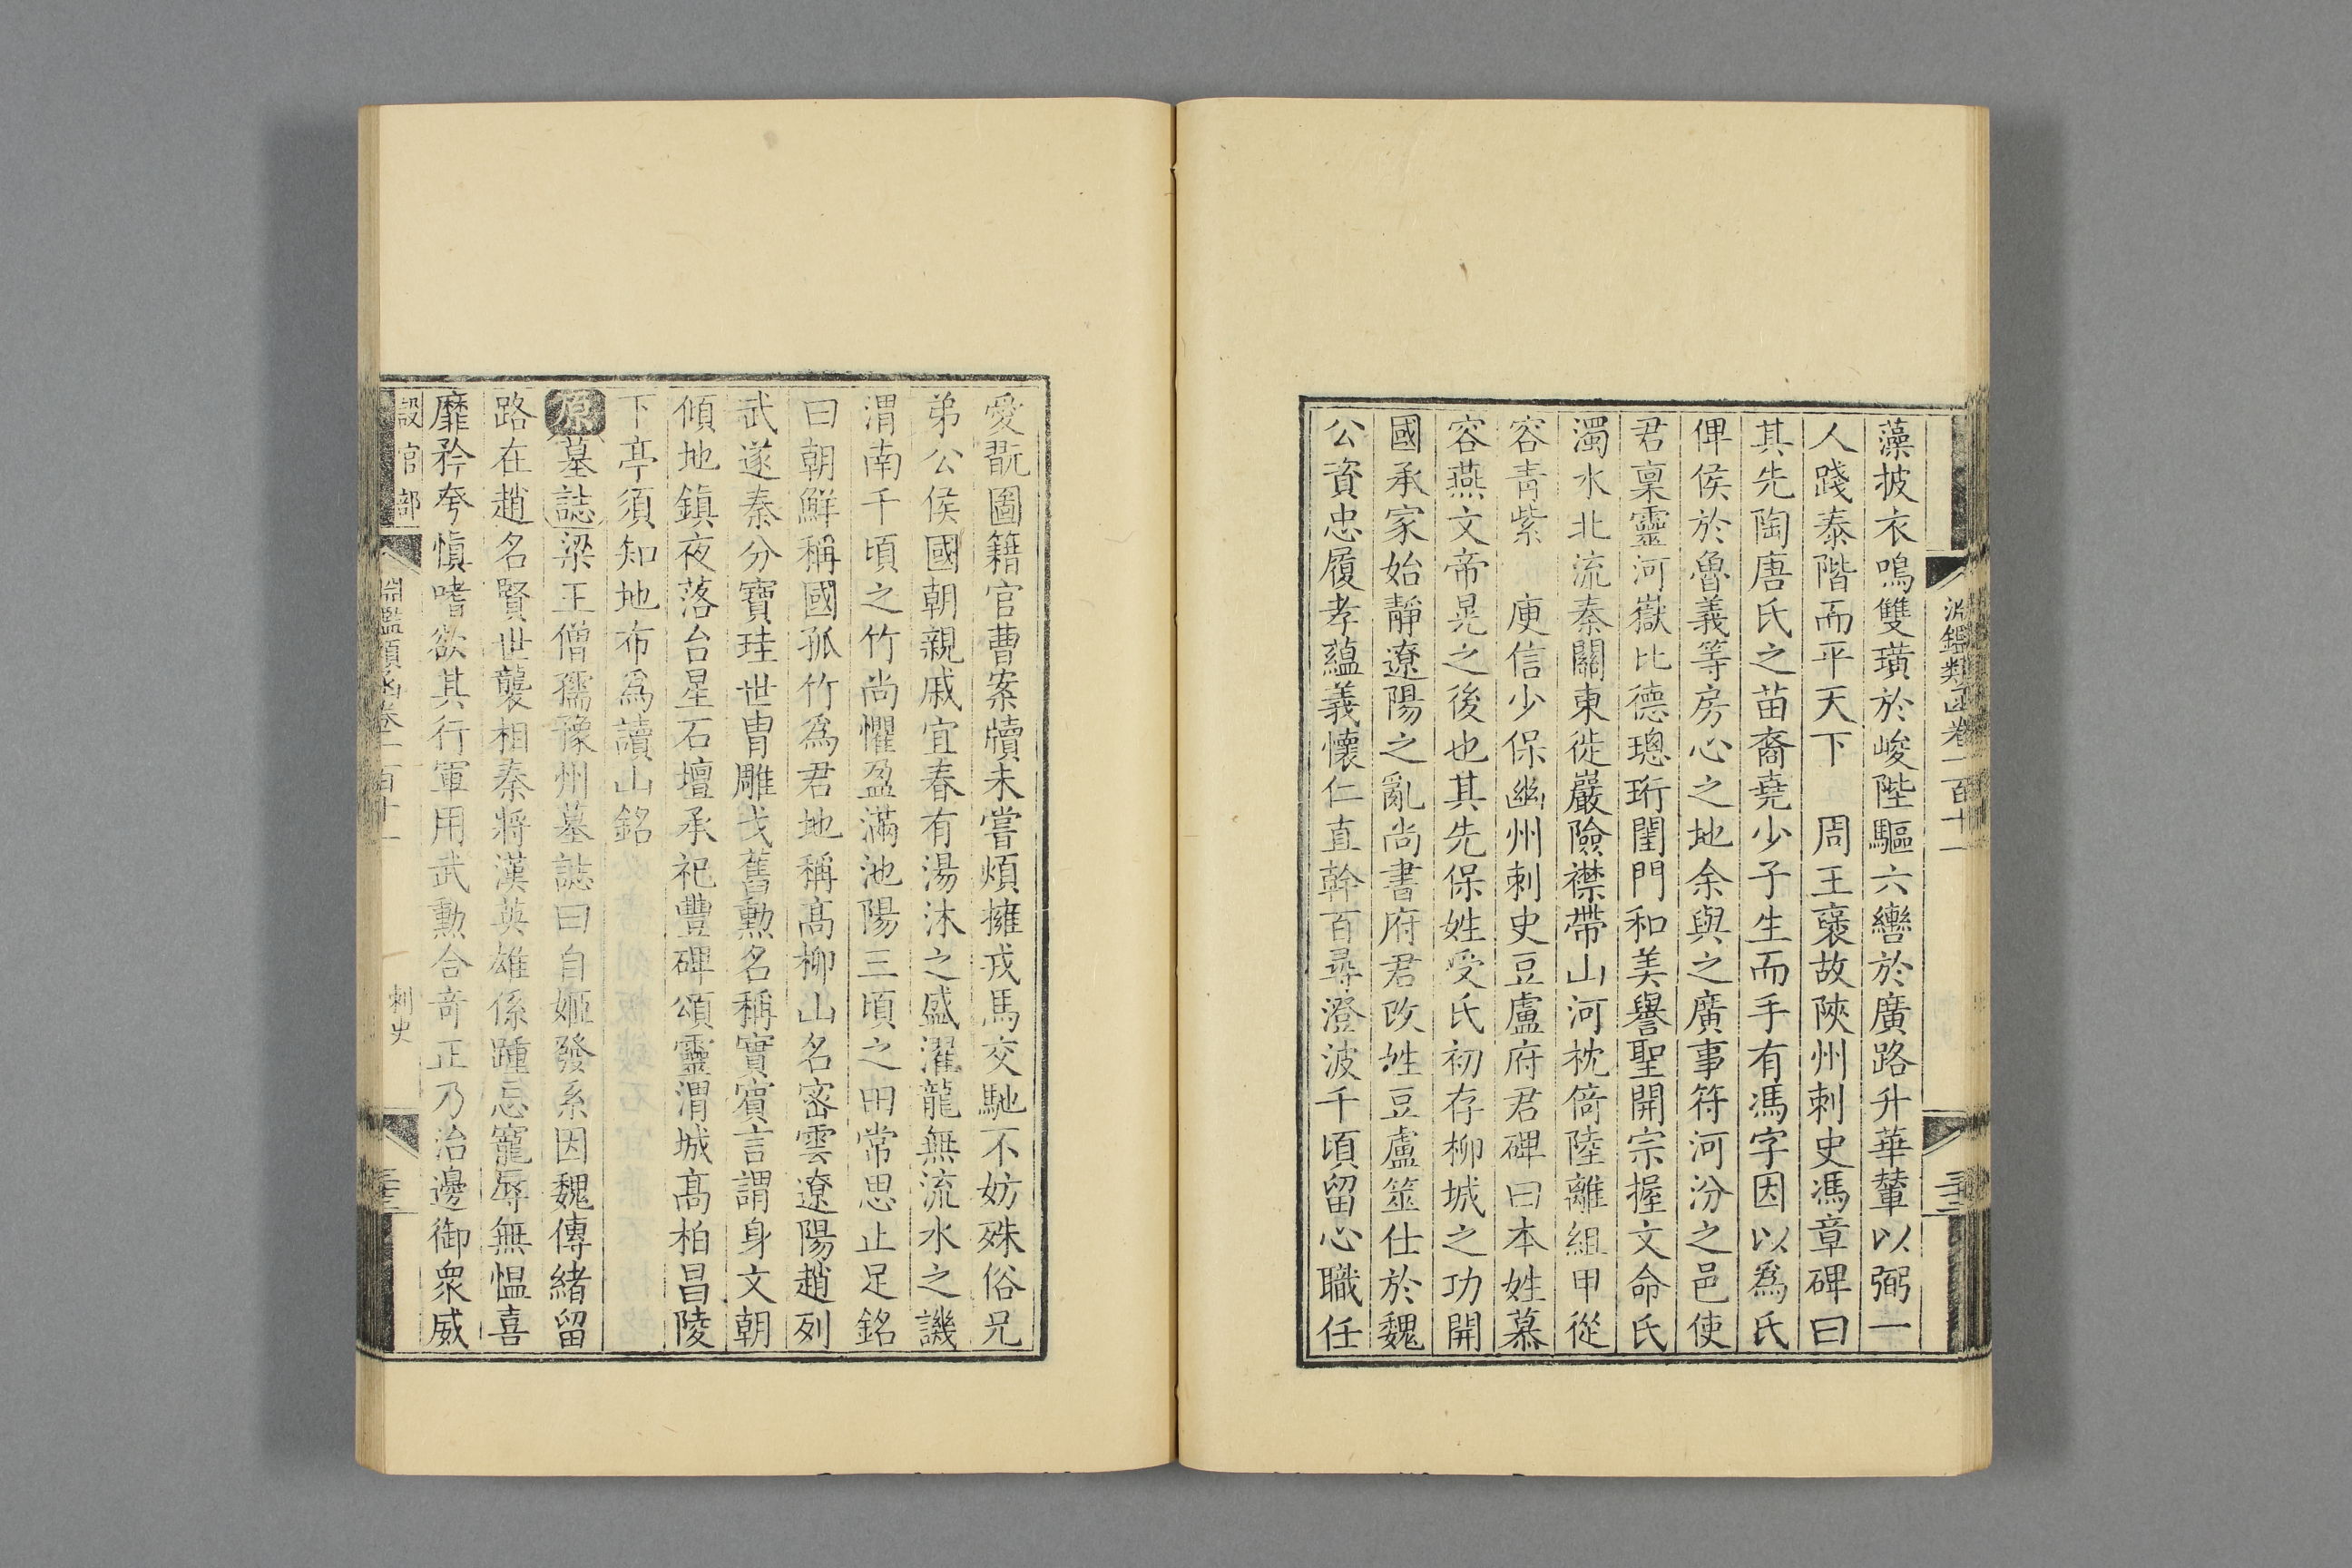 藻披衣鳴雙璜於峻陛驅六轡於廣路升華輦以弼一
人踐泰階而平天下　周王褒故陝州刺史馮章碑曰
其先陶唐氏之苗裔堯少子生而手有馮字因以爲氏
俾侯於魯義等房心之地余與之廣事符河汾之邑使
君稟靈河嶽比德璁珩閨門和美譽聖開宗握文命氏
濁水北流秦關東徙巖險襟帶山河枕倚陸離組甲從
容靑紫　庾信少保豳州刺史豆盧府君碑曰本姓慕
容燕文帝晃之後也其先保姓受氏初存柳城之功開
國承家始靜遼陽之亂尚書府君改姓豆盧筮仕於魏
公資忠履孝蘊義懷仁直幹百尋澄波千頃留心職任
愛翫圖籍官曹案牘未嘗煩擁戎馬交馳不妨殊俗兄
弟公侯國朝親戚宜春有湯沐之盛濯龍無流水之譏
渭南千頃之竹尚懼盈滿池陽三頃之田常思止足銘
曰朝鮮稱國孤竹爲君地稱髙柳山名密雲遼陽趙列
武遂秦分寶珪世冑雕戈舊勲名稱實賓言謂身文朝
傾地鎮夜落台星石壇承祀豐碑頌靈渭城髙柏昌陵
下亭須知地布爲讀山銘
原墓誌梁王僧孺豫州墓誌曰自姬發系因魏傳緒留
路在趙名賢世襲相秦將漢英雄係踵忘寵辱無慍喜
靡矜夸愼嗜欲其行軍用武勲合竒正乃治邊御衆威
淵鑑類函卷一百十一
三十三
設官部
淵鑑類函卷一百十一
刺史